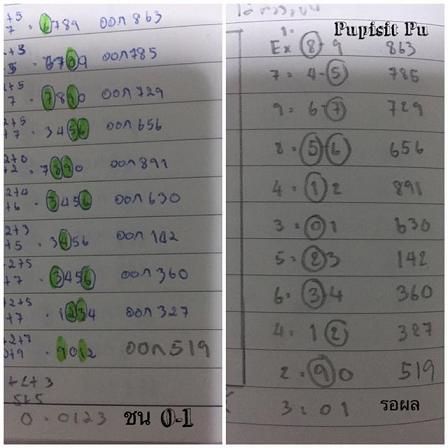 +5
7 = 6789 ออก 863
+3
5 - 6789 ออก785
+5
7 7890 ออก 729
2+5
+7 • 3456 ออก 656
2+0
+2 - 7890 ออก 891
2+4
+6 • 3456 ออก 630
2+3
+5 • 3456 ออก 142
2+5
+7 • 3456 ออก 360
2+5
+7 • 1234 ออก 327
2+7
0+9 • 9012 ออก 519
+2+3
5+5
0 = 0123 ชน 0-1
Pupisit Pu
Ex 8-9 863
7 = 4-5 785
9 = 6-7 729
8 = 5-6 656
4 = 1 2 891
3 = 0 1 630
5 = 2 3 142
6 = 3 4 360
4 = 1 2 327
2 = 9 0 519
3 = 0 1 รอผล